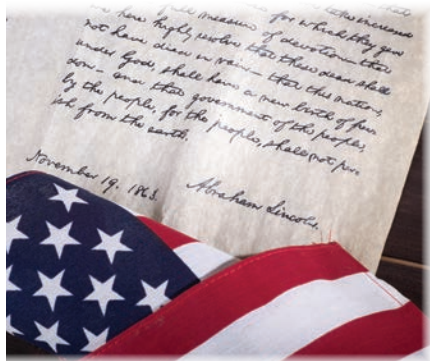 that
increased
for which they gave
full measure of devotion—that
we here highly resolve that these dead shall
not have died in vain—that this nation,
under God, shall have a new birth of free-
dom—and that government of the people,
by the people, for the people, shall not per-
ish from the earth.
November 19, 1863.
Abraham Lincoln.